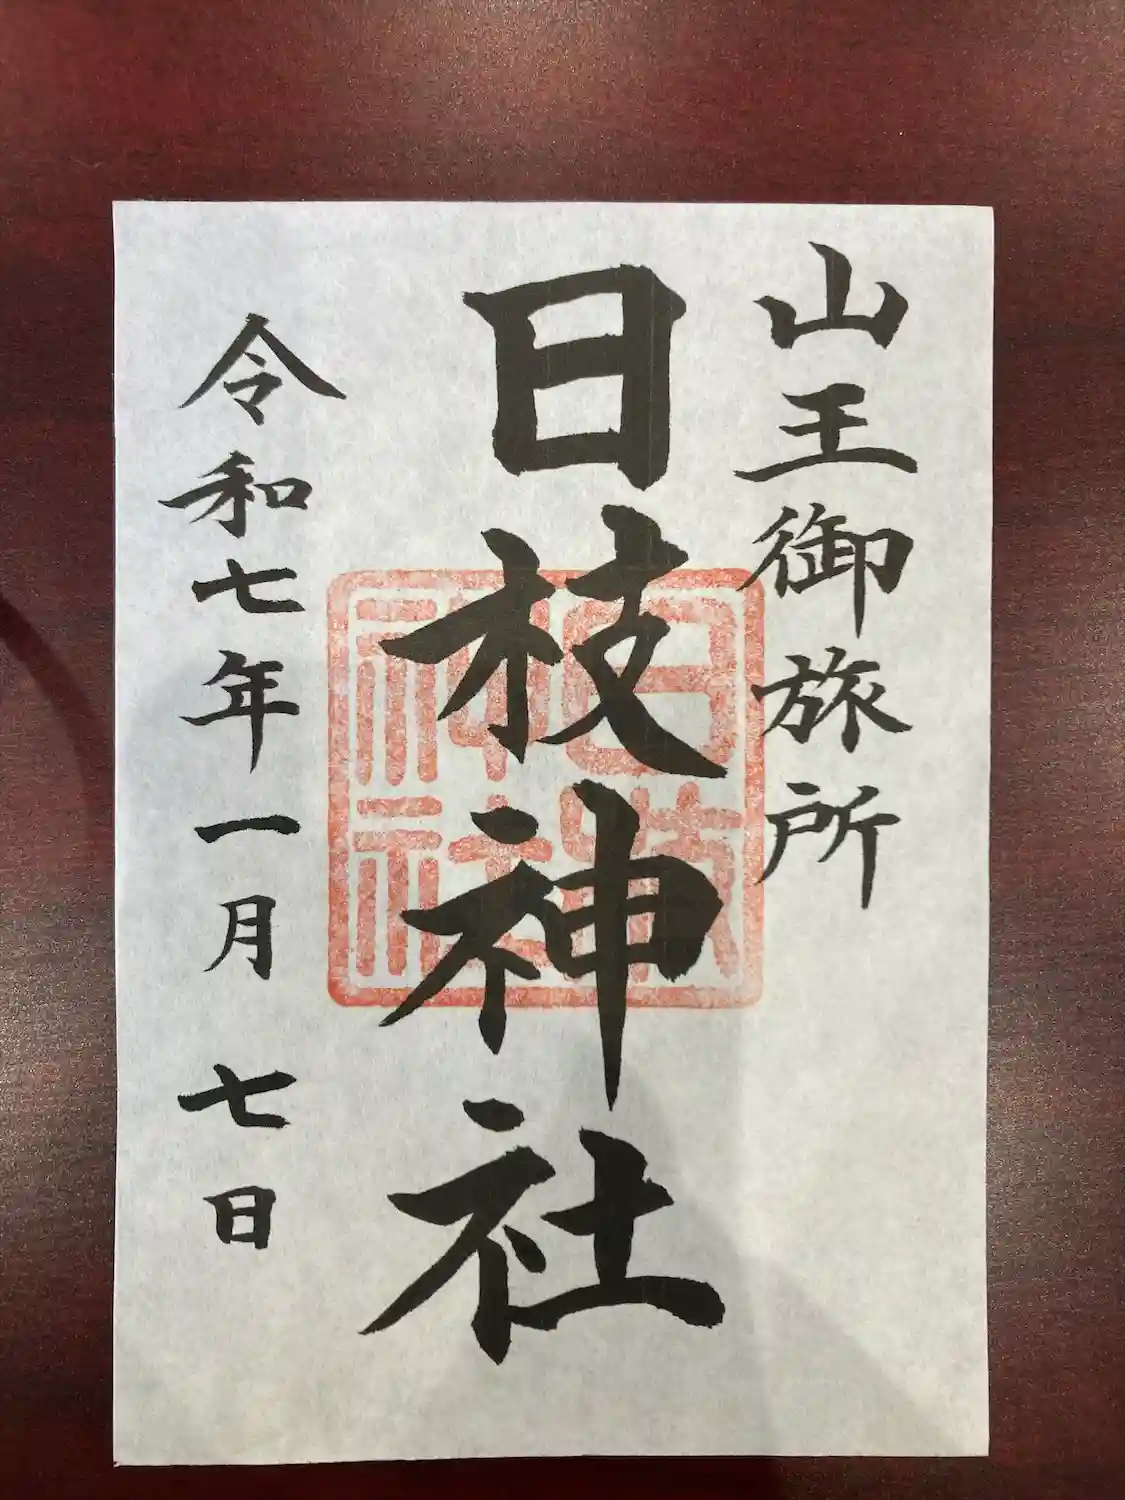 山王御旅所
日枝神社
令和七年一月七日
日枝
神社